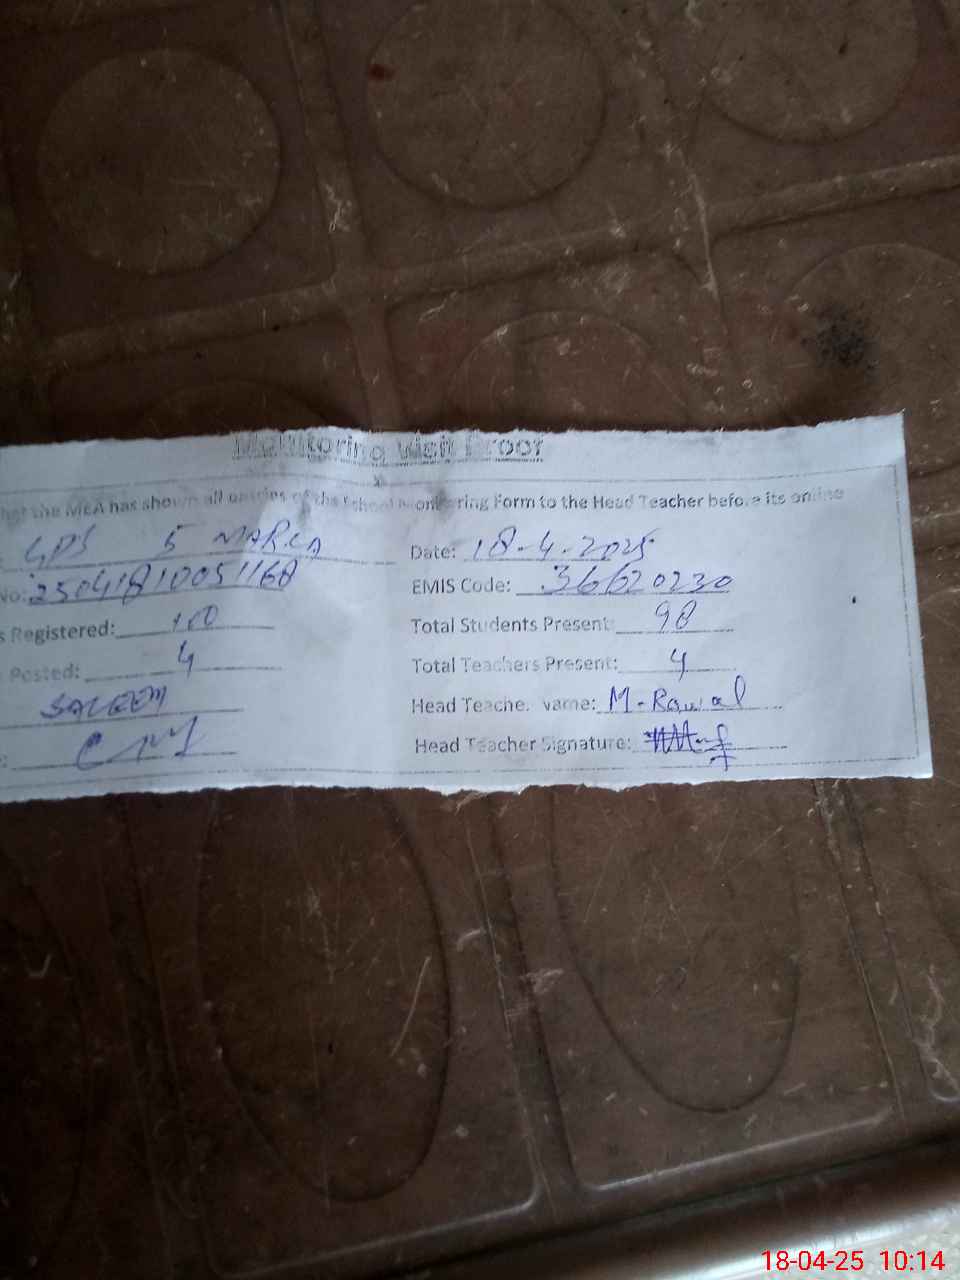 Monitoring Visit Proof
that the MEA has shown all entries of the School Monitoring Form to the Head Teacher before its online
GPS 5 MARLA Date: 18-4-2025
No: 25041810051168 EMIS Code: 36620230
s Registered: 100 Total Students Present: 98
Posted: 4 Total Teachers Present: 4
SALEEM Head Teacher Name: M-Rawal
Head Teacher Signature:
18-04-25 10:14